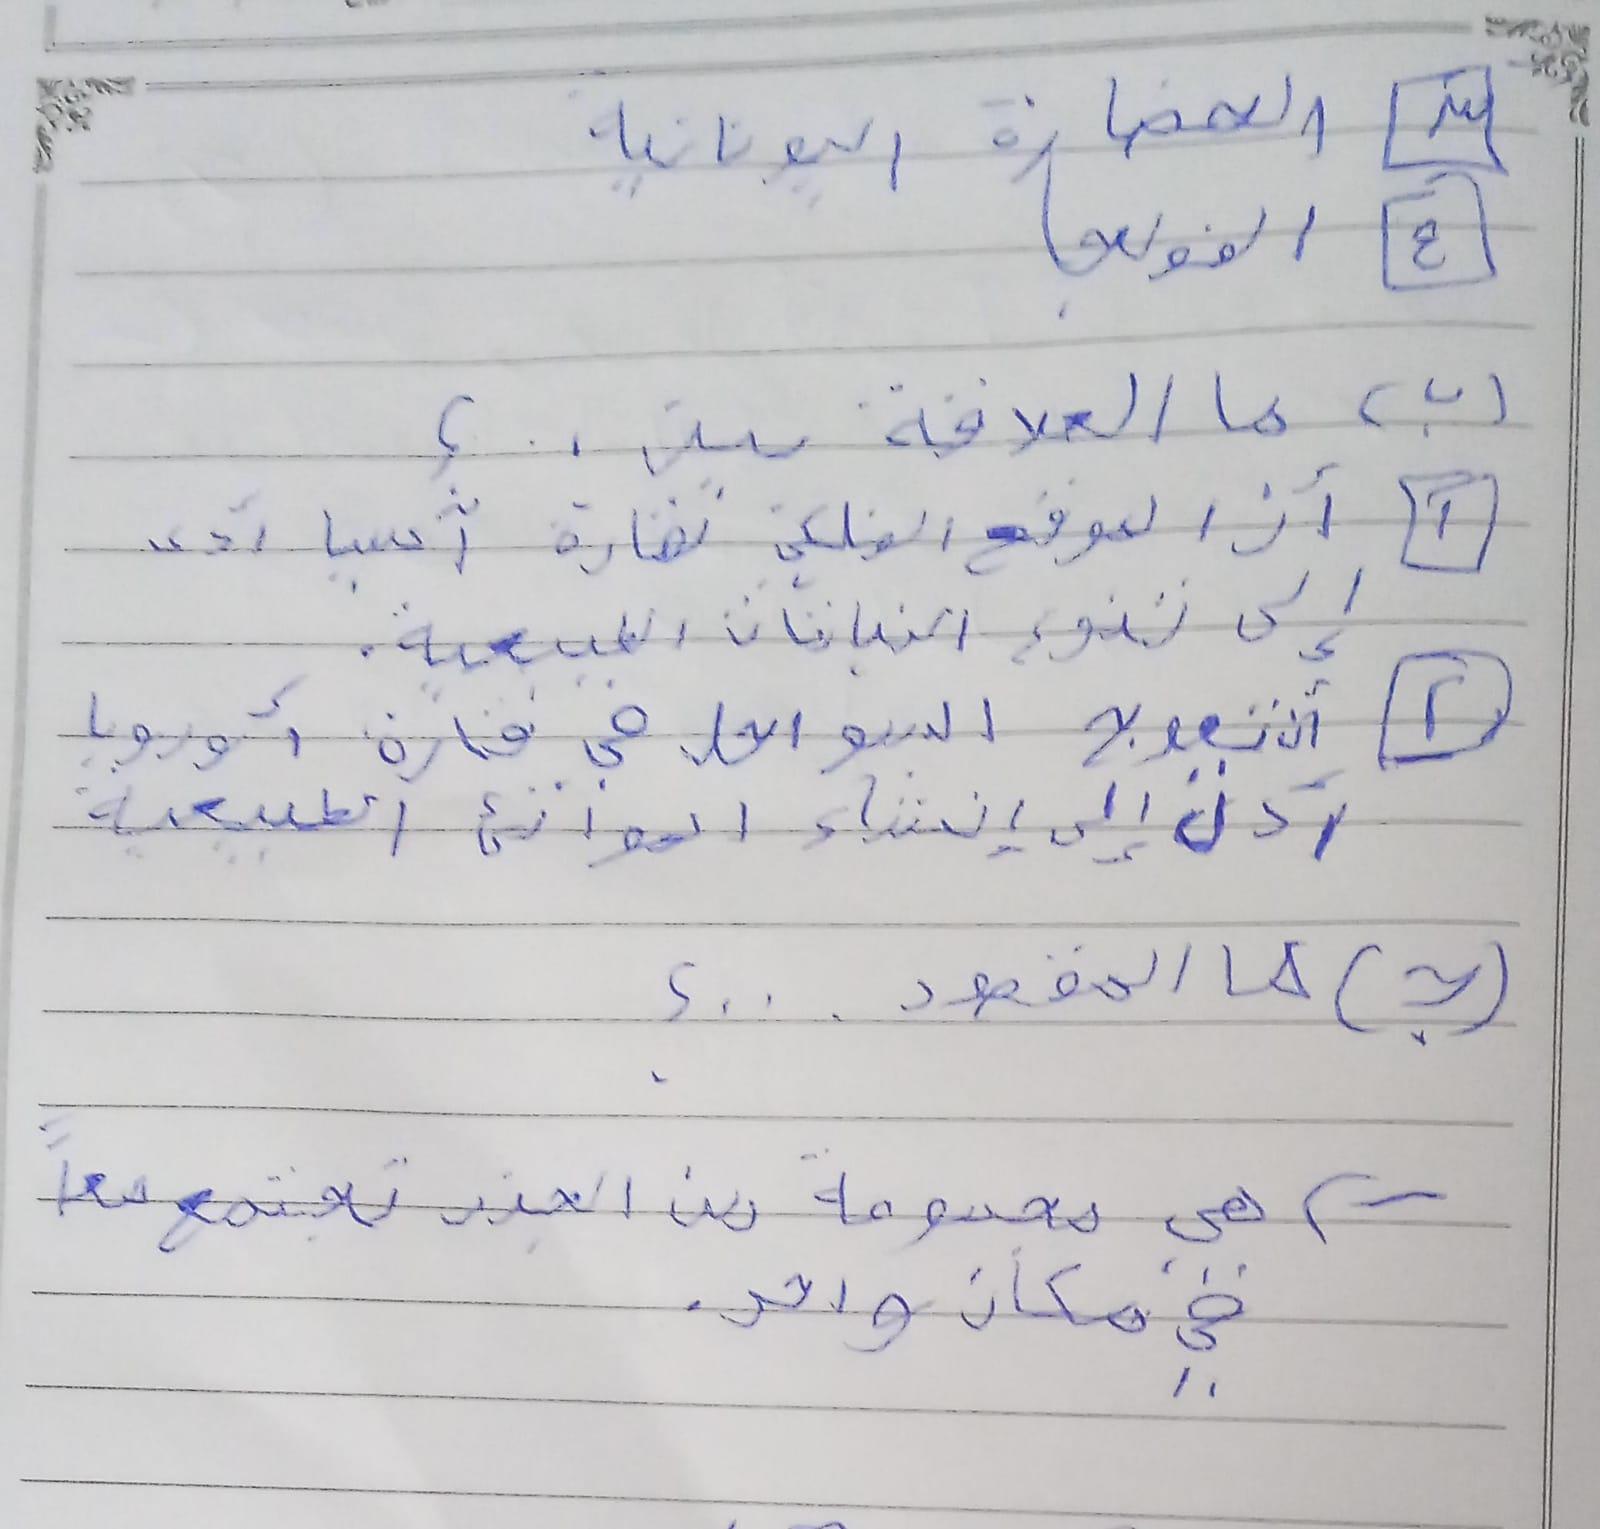 ٣ الحضارة اليونانية
٤ الفولجا
(ب) ما العلاقة بين ..؟
١ أن الموقع الفلكي لقارة آسيا أدى
إلى تنوع النباتات الطبيعية.
٢ أن تعوج السواحل في قارة أوروبا
أدى إلى إنشاء الموانئ الطبيعية
(ج) ما المقصود ...؟
٢- هي مجموعة من الجزر تجتمع معاً
في مكان واحد.